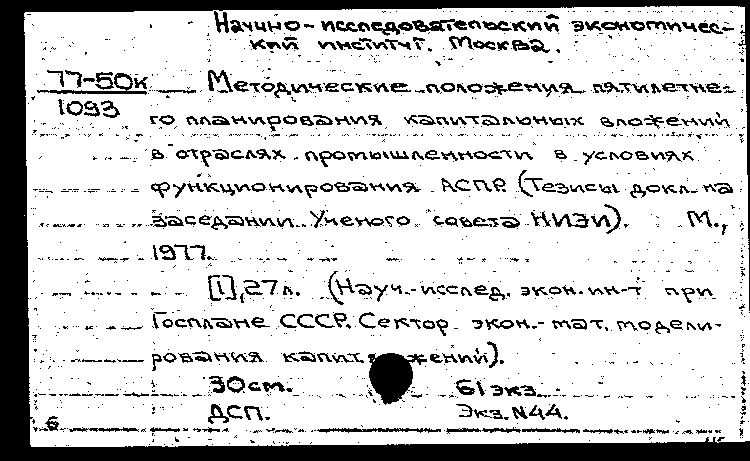 Научно-исследовательский экономичес-
кий институт. Москва.
77-50к
1093
Методические положения пятилетне-
го планирования капитальных вложений
в отраслях промышленности в условиях
функционирования АСПР. (Тезисы докл. на
заседании Ученого совета НИЭИ). М.,
1977.
[1], 27 л. (Науч.-исслед. экон. ин-т при
Госплане СССР. Сектор экон.-мат. модели-
рования капит. жений).
30 см. 61 экз.
ДСП. Экз. N44.
6